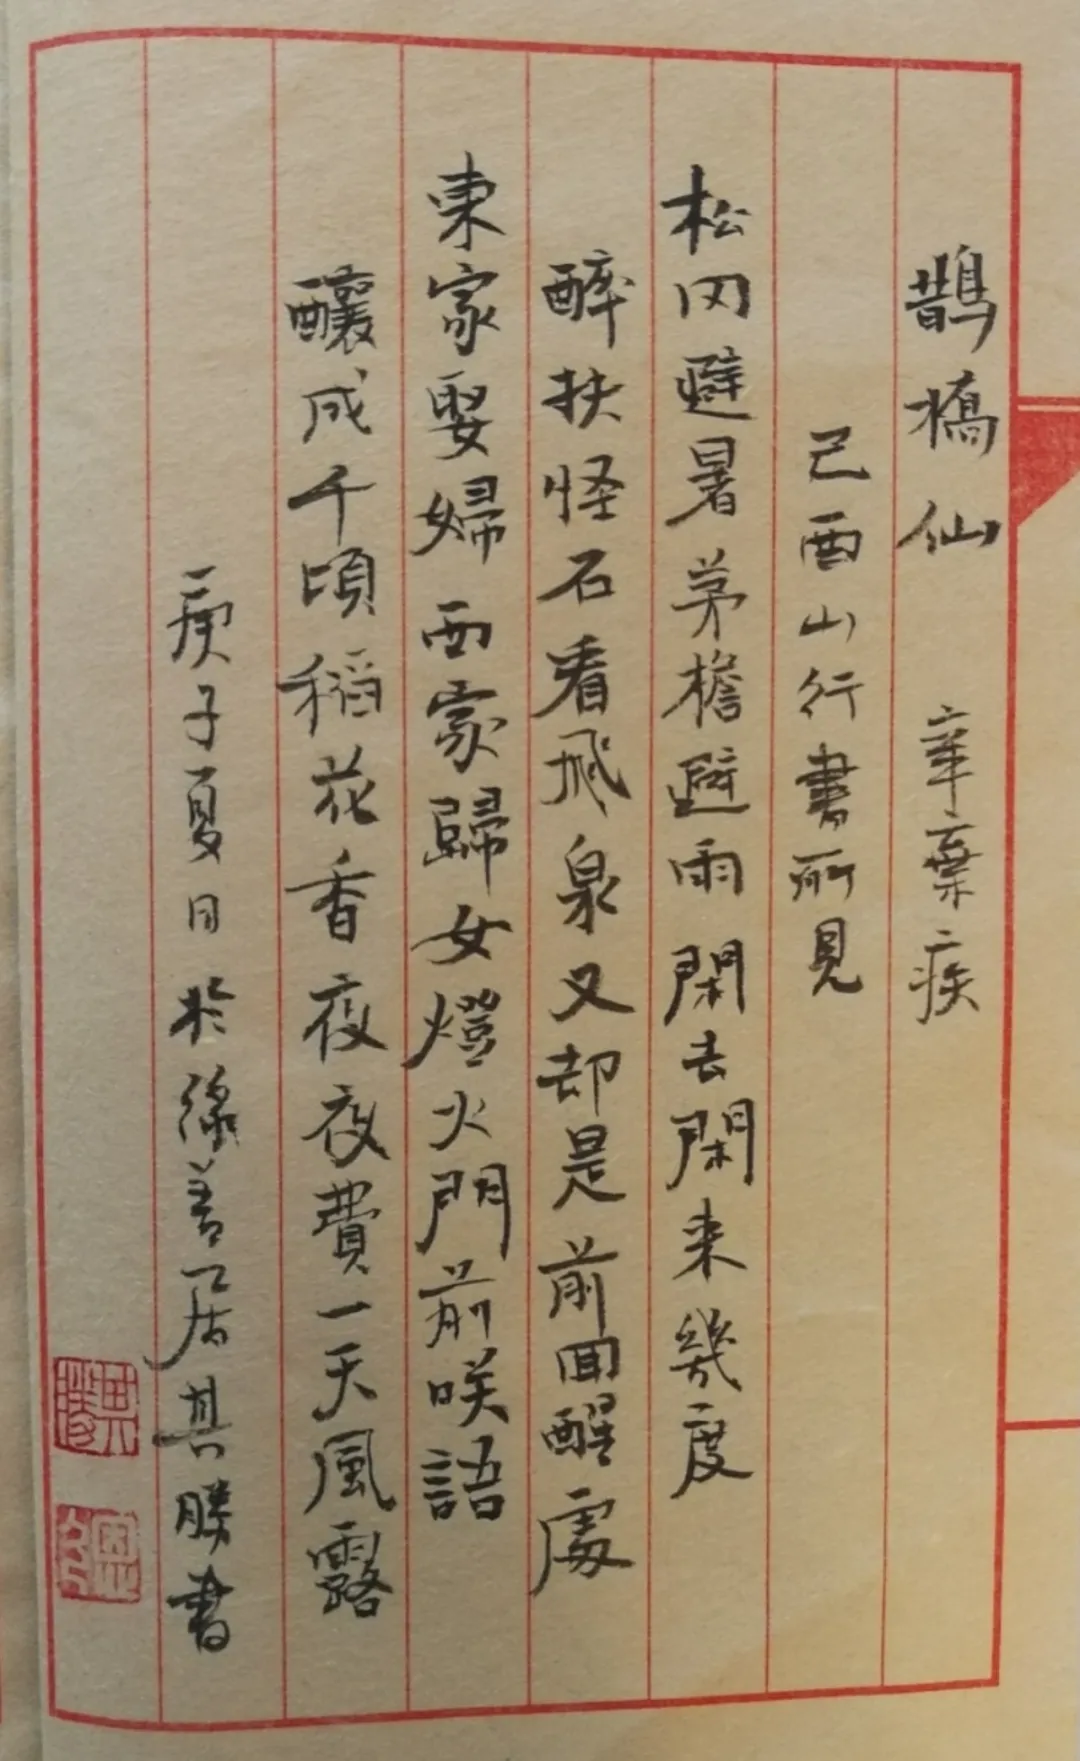 鵲橋仙 辛棄疾
己酉山行書所見
松冈避暑茅檐避雨閑去閑来幾度
醉扶怪石看飛泉又却是前回醒處
東家娶婦西家歸女燈火門前咲語
釀成千頃稻花香夜夜費一天風露
庚子夏日於緣善居其勝書